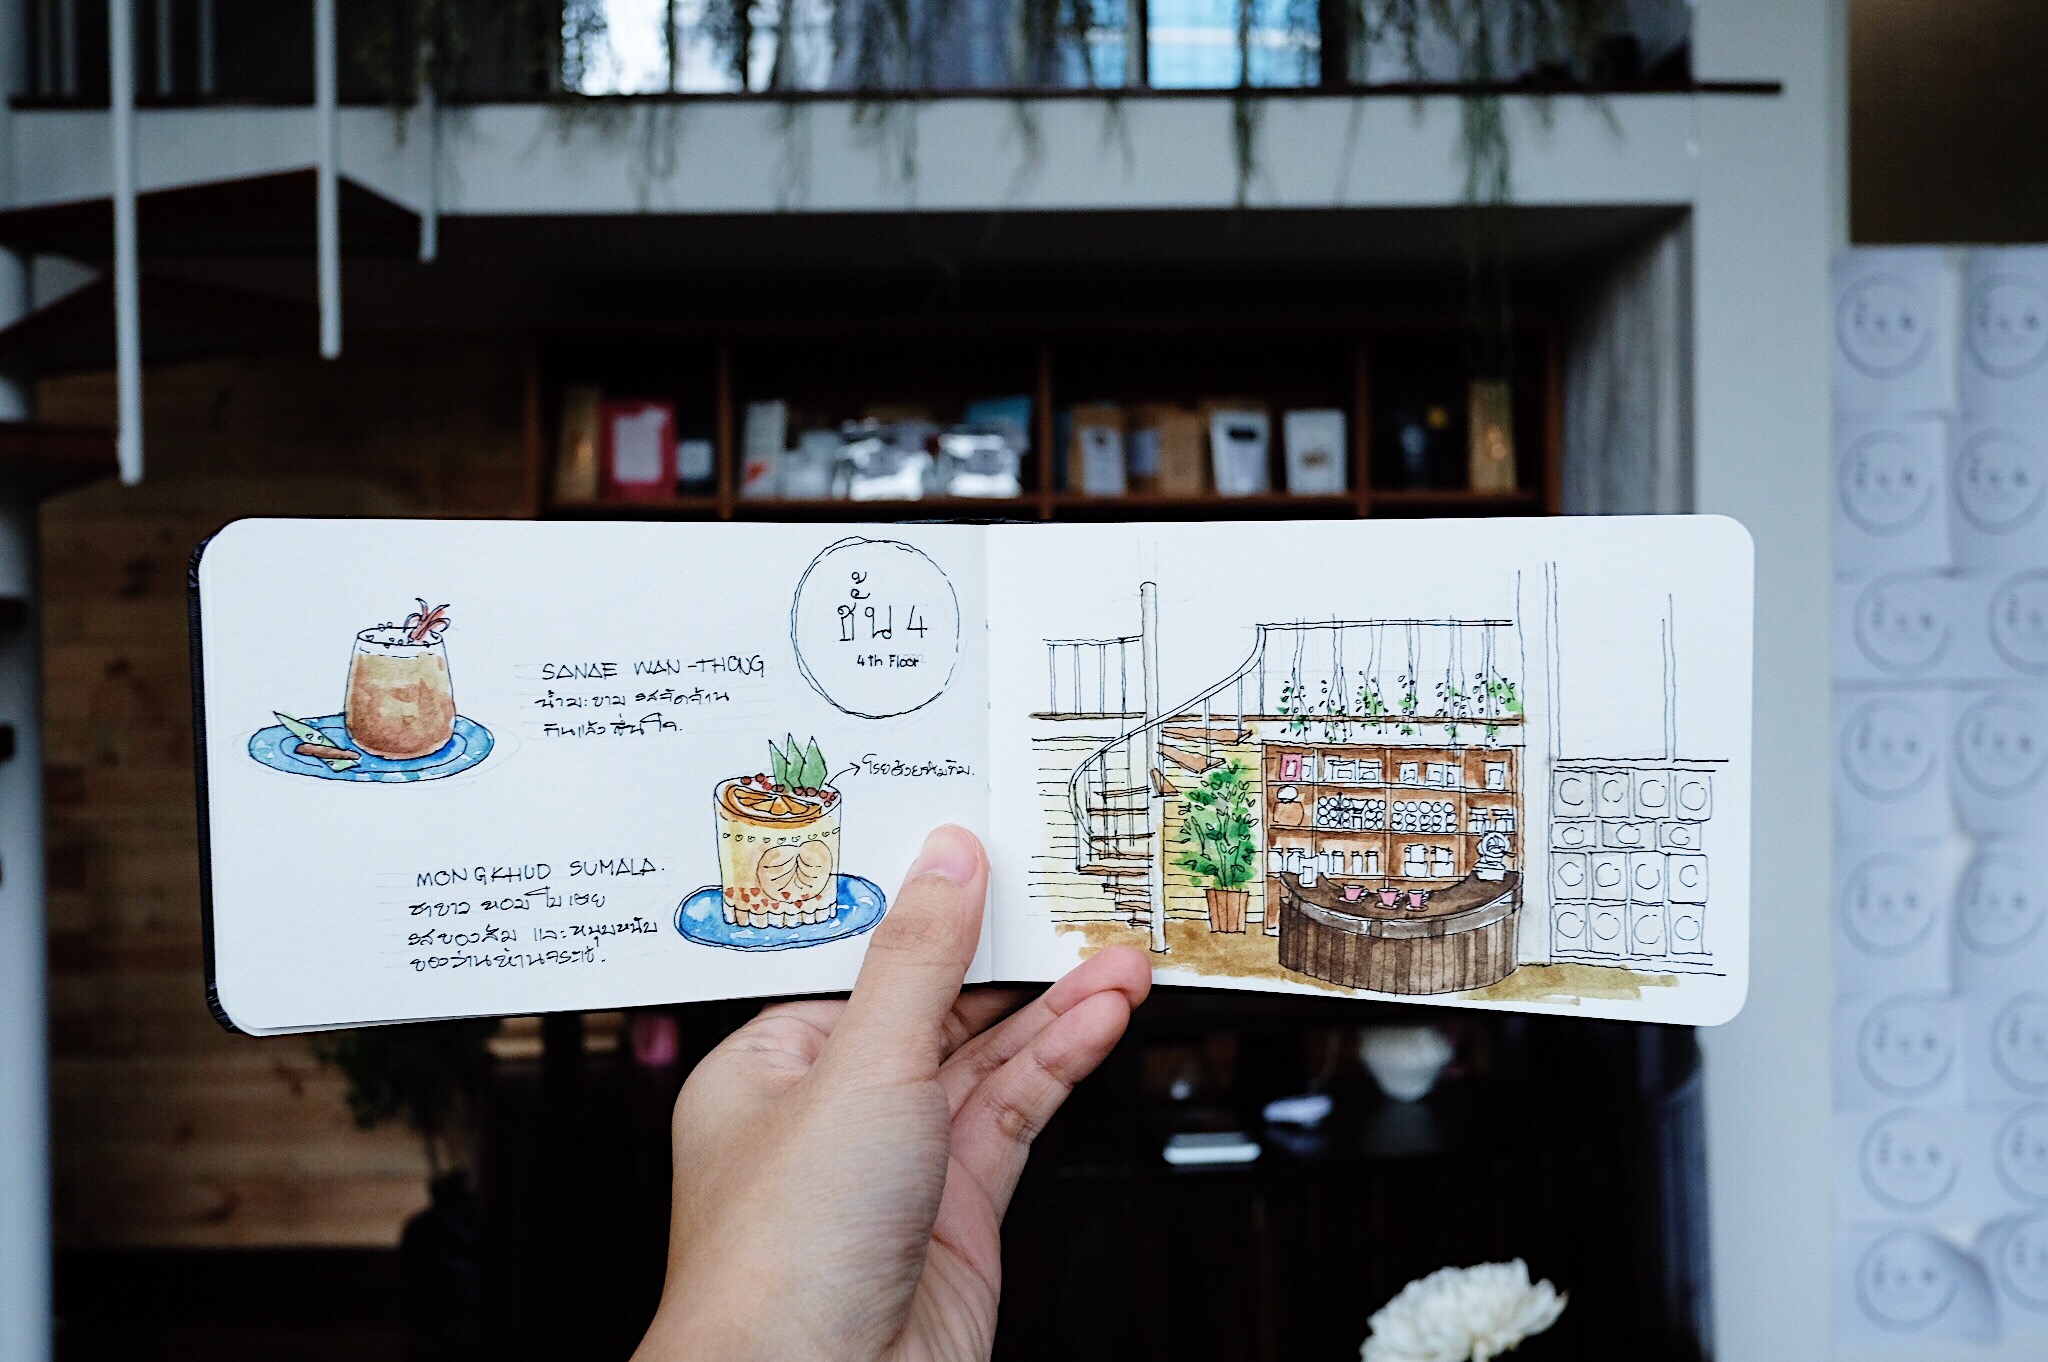 ชั้น 4
4th Floor
SANAE WAN-THONG
น้ำมะขาม รสจัดจ้าน
กินแล้วชื่นใจ.
โรยด้วยทับทิม.
MONGKHUD SUMALA.
ชาขาว หอมใบเตย
รสของส้ม และหนุบหนับ
ของว่านหางจระเข้.